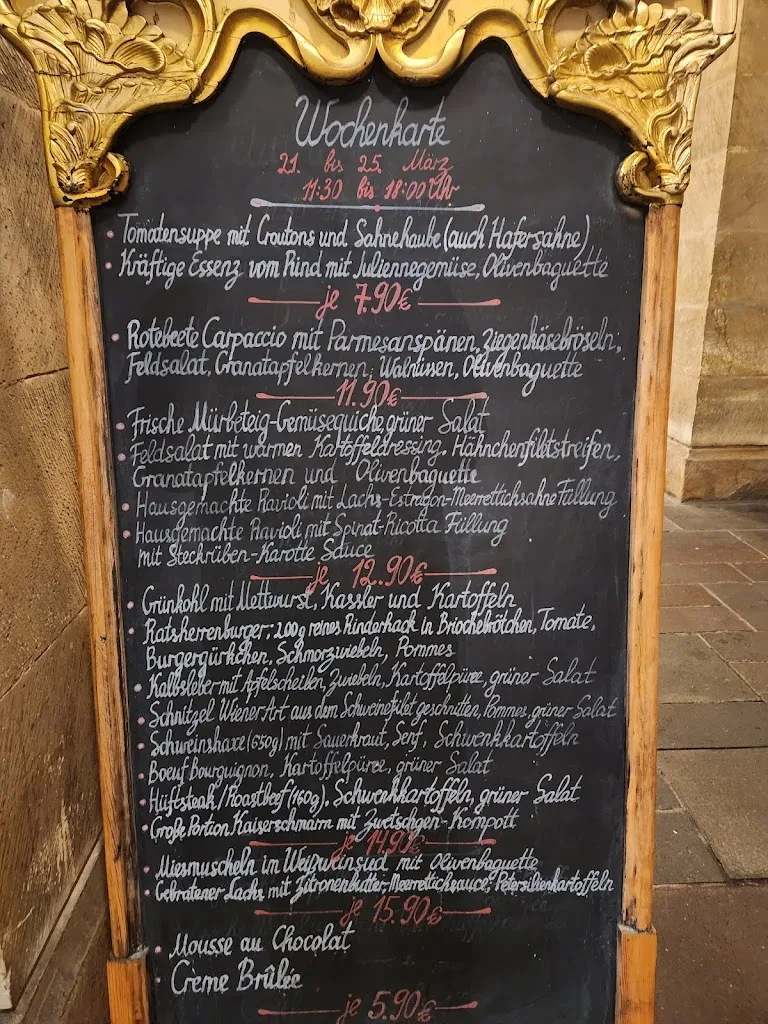 Wochenkarte
21. bis 25. März
11:30 bis 18:00 Uhr
Tomatensuppe mit Croutons und Sahnehaube (auch Hafersahne)
Kräftige Essenz vom Rind mit Juliennegemüse, Olivenbaguette
je 7.90€
Rotebeete Carpaccio mit Parmesanspänen, Ziegenkäsebröseln,
Feldsalat, Granatapfelkernen, Walnüssen, Olivenbaguette
11.90€
Frische Mürbeteig-Gemüsequiche, grüner Salat
Feldsalat mit warmen Kartoffeldressing, Hähnchenfiletstreifen,
Granatapfelkernen und Olivenbaguette
Hausgemachte Ravioli mit Lachs-Estragon-Meerrettichsahne Füllung
Hausgemachte Ravioli mit Spinat-Ricotta Füllung
mit Steckrüben-Karotte Sauce
je 12.90€
Grünkohl mit Mettwurst, Kassler und Kartoffeln
Ratsherrenburger: 200g reines Rinderhack in Briochebrötchen, Tomate,
Burgergürkchen, Schmorzwiebeln, Pommes
Kalbsleber mit Apfelscheiben, Zwiebeln, Kartoffelpüree, grüner Salat
Schnitzel Wiener Art aus dem Schweinefilet geschnitten, Pommes, grüner Salat
Schweinshaxe (650g) mit Sauerkraut, Senf, Schwenkkartoffeln
Boeuf Bourguignon, Kartoffelpüree, grüner Salat
Hüftsteak/Roastbeef (160g), Schwenkkartoffeln, grüner Salat
Große Portion Kaiserschmarrn mit Zwetschgen-Kompott
je 14.90€
Miesmuscheln im Weißweinsud mit Olivenbaguette
Gebratener Lachs mit Zitronenbutter-Meerrettichsauce, Petersilienkartoffeln
je 15.90€
Mousse au Chocolat
Crème Brûlée
je 5.90€